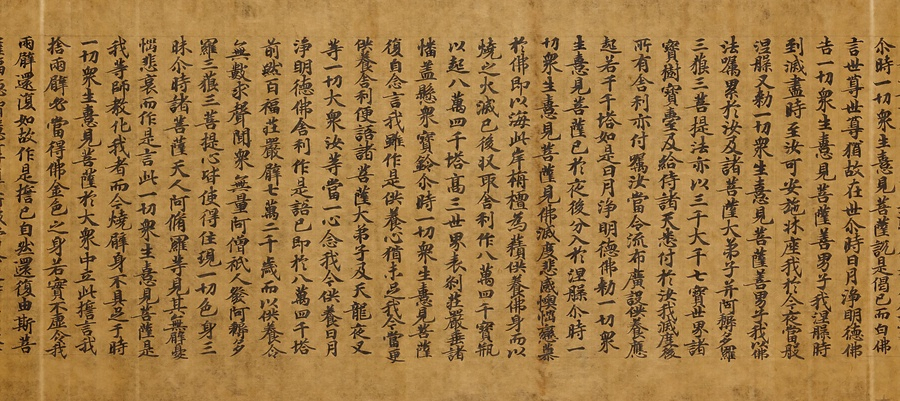 尒時一切衆生憙見菩薩說是偈已而白佛
言世尊世尊猶故在世尒時日月淨明德佛
告一切衆生憙見菩薩善男子我涅槃時
到滅盡時至汝可安施牀座我於今夜當般
涅槃又勑一切衆生憙見菩薩善男子我以佛
法囑累於汝及諸菩薩大弟子并阿耨多羅
三藐三菩提法亦以三千大千七寶世界諸
寶樹寶臺及給侍諸天悉付於汝我滅度後
所有舍利亦付囑汝當令流布廣設供養應
起若干千塔如是日月淨明德佛勑一切衆
生憙見菩薩已於夜後分入於涅槃尒時一
切衆生憙見菩薩見佛滅度悲感懊惱戀慕
於佛即以海此岸栴檀為𧂐供養佛身而以
燒之火滅已後収取舍利作八萬四千寶瓶
以起八萬四千塔高三世界表刹莊嚴垂諸
幡蓋懸衆寶鈴尒時一切衆生憙見菩薩
復自念言我雖作是供養心猶未足我今當更
供養舍利便語諸菩薩大弟子及天龍夜叉
等一切大衆汝等當一心念我今供養日月
淨明德佛舍利作是語已即於八萬四千塔
前然百福莊嚴臂七萬二千歲而以供養令
無數求聲聞衆無量阿僧祇人發阿耨多
羅三藐三菩提心皆使得住現一切色身三
昧尒時諸菩薩天人阿脩羅等見其無臂憂
惱悲哀而作是言此一切衆生憙見菩薩是
我等師教化我者而今燒臂身不具足于時
一切衆生憙見菩薩於大衆中立此誓言我
捨兩臂必當得佛金色之身若實不虛令我
兩臂還復如故作是誓已自然還復由斯菩